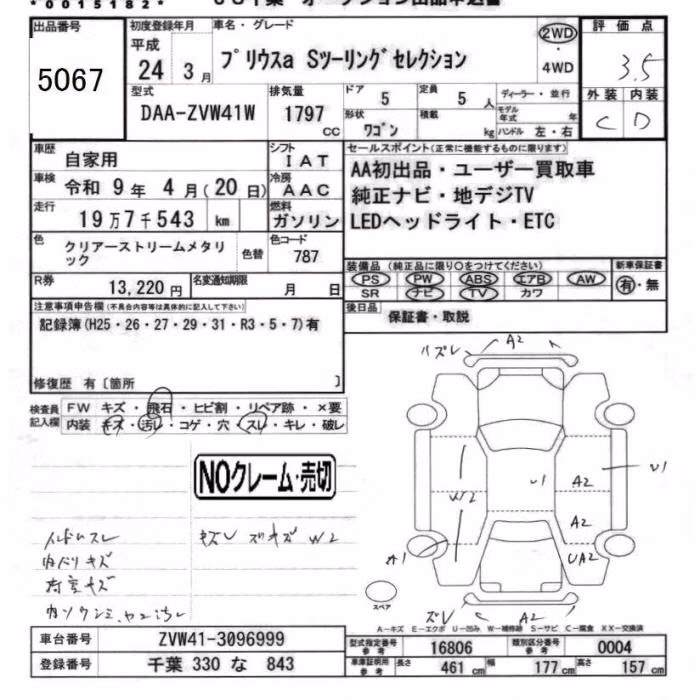 *0015182*
出品番号 初度登録年月 車名・グレード 評価点
5067
平成 24 3月
プリウスa Sツーリングセレクション
2WD ・ 4WD
3.5
外装 内装
C D
型式 排気量 ドア 定員 ディーラー・並行
DAA-ZVW41W 1797 CC 5 5 人
モデル年式 年
形状 積載
ワゴン kg ハンドル 左・右
車歴 自家用 シフト IAT
車検 令和 9年 4月(20日) 冷房 AAC
走行 19万7千543 km 燃料 ガソリン
色 クリアーストリームメタリック 色替 色コード 787
R券 13,220円 名変通知期限 月 日
セールスポイント(正常に機能するものに限ります)
AA初出品・ユーザー買取車
純正ナビ・地デジTV
LEDヘッドライト・ETC
装備品 (純正品に限り○をつけてください) 新車保証書
PS PW ABS エアB AW 有・無
SR ナビ TV カワ
後日品 保証書・取説
注意事項申告欄(不具合内容等は具体的に記入して下さい)
記録簿(H25・26・27・29・31・R3・5・7)有
修復歴 有〔箇所 〕
検査員記入欄 FW キズ・飛石・ヒビ割・リペア跡・×要
内装 キズ・汚レ・コゲ・穴・スレ・キレ・破レ
NOクレーム・売切
ハズレ A2
W2 U1 U1 A2
A2
A1 UA2
ズレ A2
スペア
ハンドルスレ
内バリキズ
荷室キズ
W2
A－キズ E－エクボ U－凹み W－補修跡 S－サビ C－腐食 XX－交換済
車台番号 ZVW41-3096999
登録番号 千葉 330 な 843
型式指定番号 参考 16806 類別区分番号 参考 0004
車庫証明用 参考 長さ 461 cm 幅 177 cm 高さ 157 cm